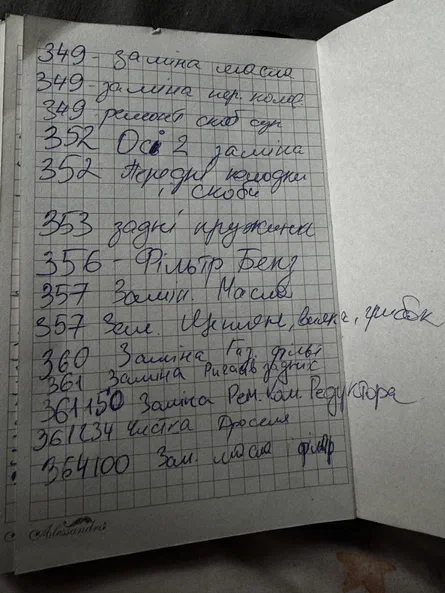 349 - заміна масла
349 - заміна пер. колод
349 ремонт скоб суп
352 Осі 2 заміна
352 Передні колодки
, скоби
353 задні пружини
356 - Фільтр Бенз
357 Замін. Масла
357 Зам. Щеплен, вилка, грибок
360 Заміна Газ. фільт
361 Заміна Ричагів задніх
361150 Заміна Рем. Ком. Редуктора
361234 чистка Дроселя
364100 Зам. масла фільтр
Alessandro